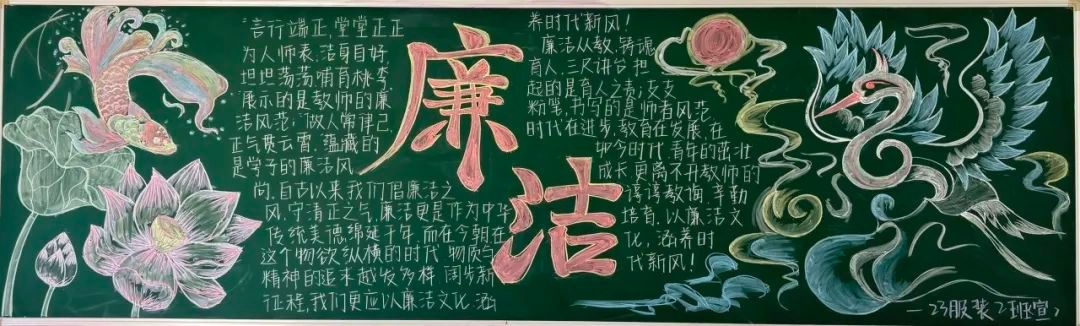 "言行端正,堂堂正正
为人师表,洁身自好,
坦坦荡荡哺育桃李"
展示的是教师的廉
洁风范;"做人常律己,
正气贯云霄"蕴藏的
是学子的廉洁风
尚。自古以来我们倡廉洁之
风,守清正之气,廉洁更是作为中华
传统美德绵延千年,而在今朝在
这个物欲纵横的时代,物质与
精神的追求越发多样,阔步新
征程,我们更应以廉洁文化,涵
廉洁
养时代新风!
廉洁从教,铸魂
育人,三尺讲台,担
起的是育人之责;支支
粉笔,书写的是师者风范,
时代在进步,教育在发展,在
如今时代,青年的茁壮
成长更离不开教师的
谆谆教诲,辛勤
培育,以廉洁文
化,涵养时
代新风!
—23服装2班宣